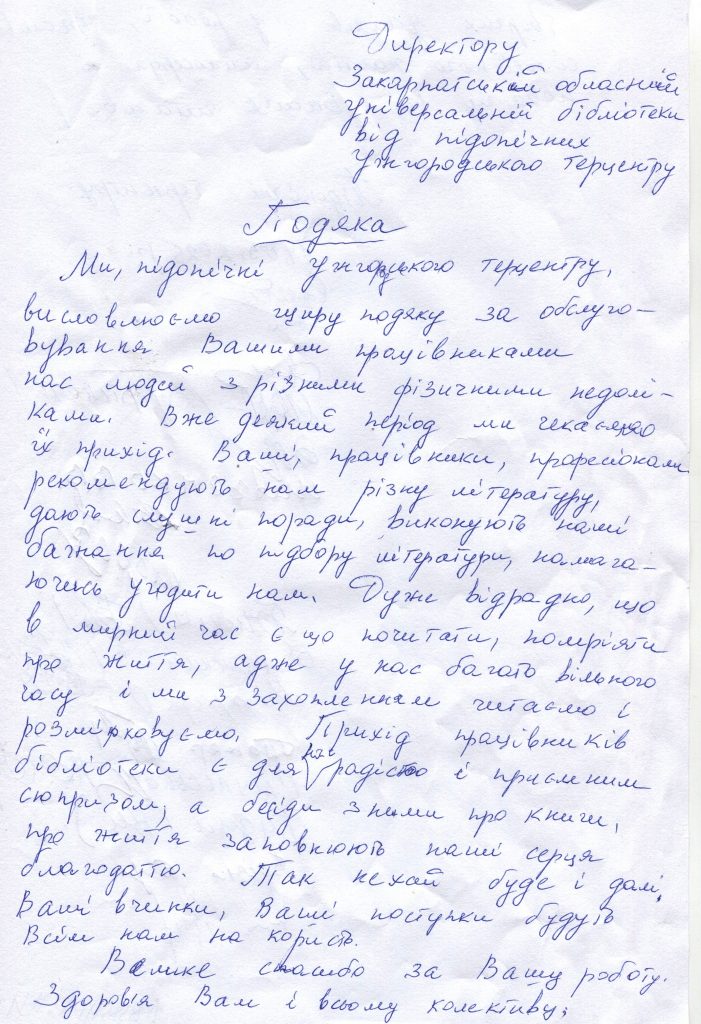 Директору
Закарпатській обласній
Універсальній бібліотеки
від підопічних
Ужгородського терцентру
Подяка
Ми, підопічні Ужгородського терцентру,
висловлюємо щиру подяку за обслуго-
вування Вашими працівниками
нас людей з різними фізичними недолі-
ками. Вже деякий період ми чекаємо
їх прихід. Ваші, працівники, професіонали
рекомендують нам різну літературу,
дають слушні поради, виконують наші
бажання по підбору літератури, намага-
ючись угодити нам. Дуже відрадно, що
в мирний час є що почитати, помріяти
про життя, адже у нас багато вільного
часу і ми з захопленням читаємо і
розмірковуємо. Прихід працівників
бібліотеки є для нас радістю і приємним
сюпризом, а бесіди з ними про книги,
про життя заповнюють наші серця
благодаттю. Так нехай буде і далі,
Ваші вчинки, Ваші поступки будуть
Всім нам на користь.
Велике спасибо за Вашу роботу.
Здоров'я Вам і всьому колективу;